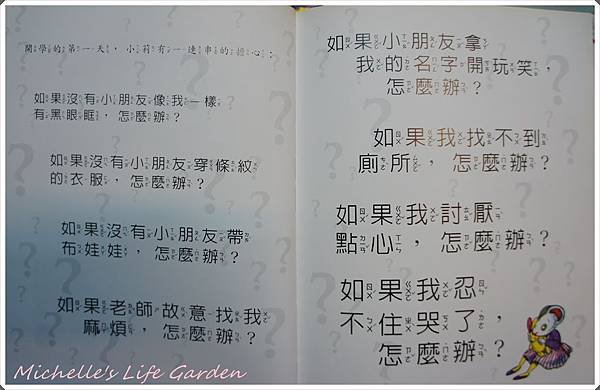 開學的第一天，小莉有一連串的擔心：
如果沒有小朋友像我一樣
有黑眼眶，怎麼辦？
如果沒有小朋友穿條紋
的衣服，怎麼辦？
如果沒有小朋友帶
布娃娃，怎麼辦？
如果老師故意找我
麻煩，怎麼辦？
如果小朋友拿
我的名字開玩笑，
怎麼辦？
如果我找不到
廁所，怎麼辦？
如果我討厭
點心，怎麼辦？
如果我忍
不住哭了，
怎麼辦？
Michelle's Life Garden